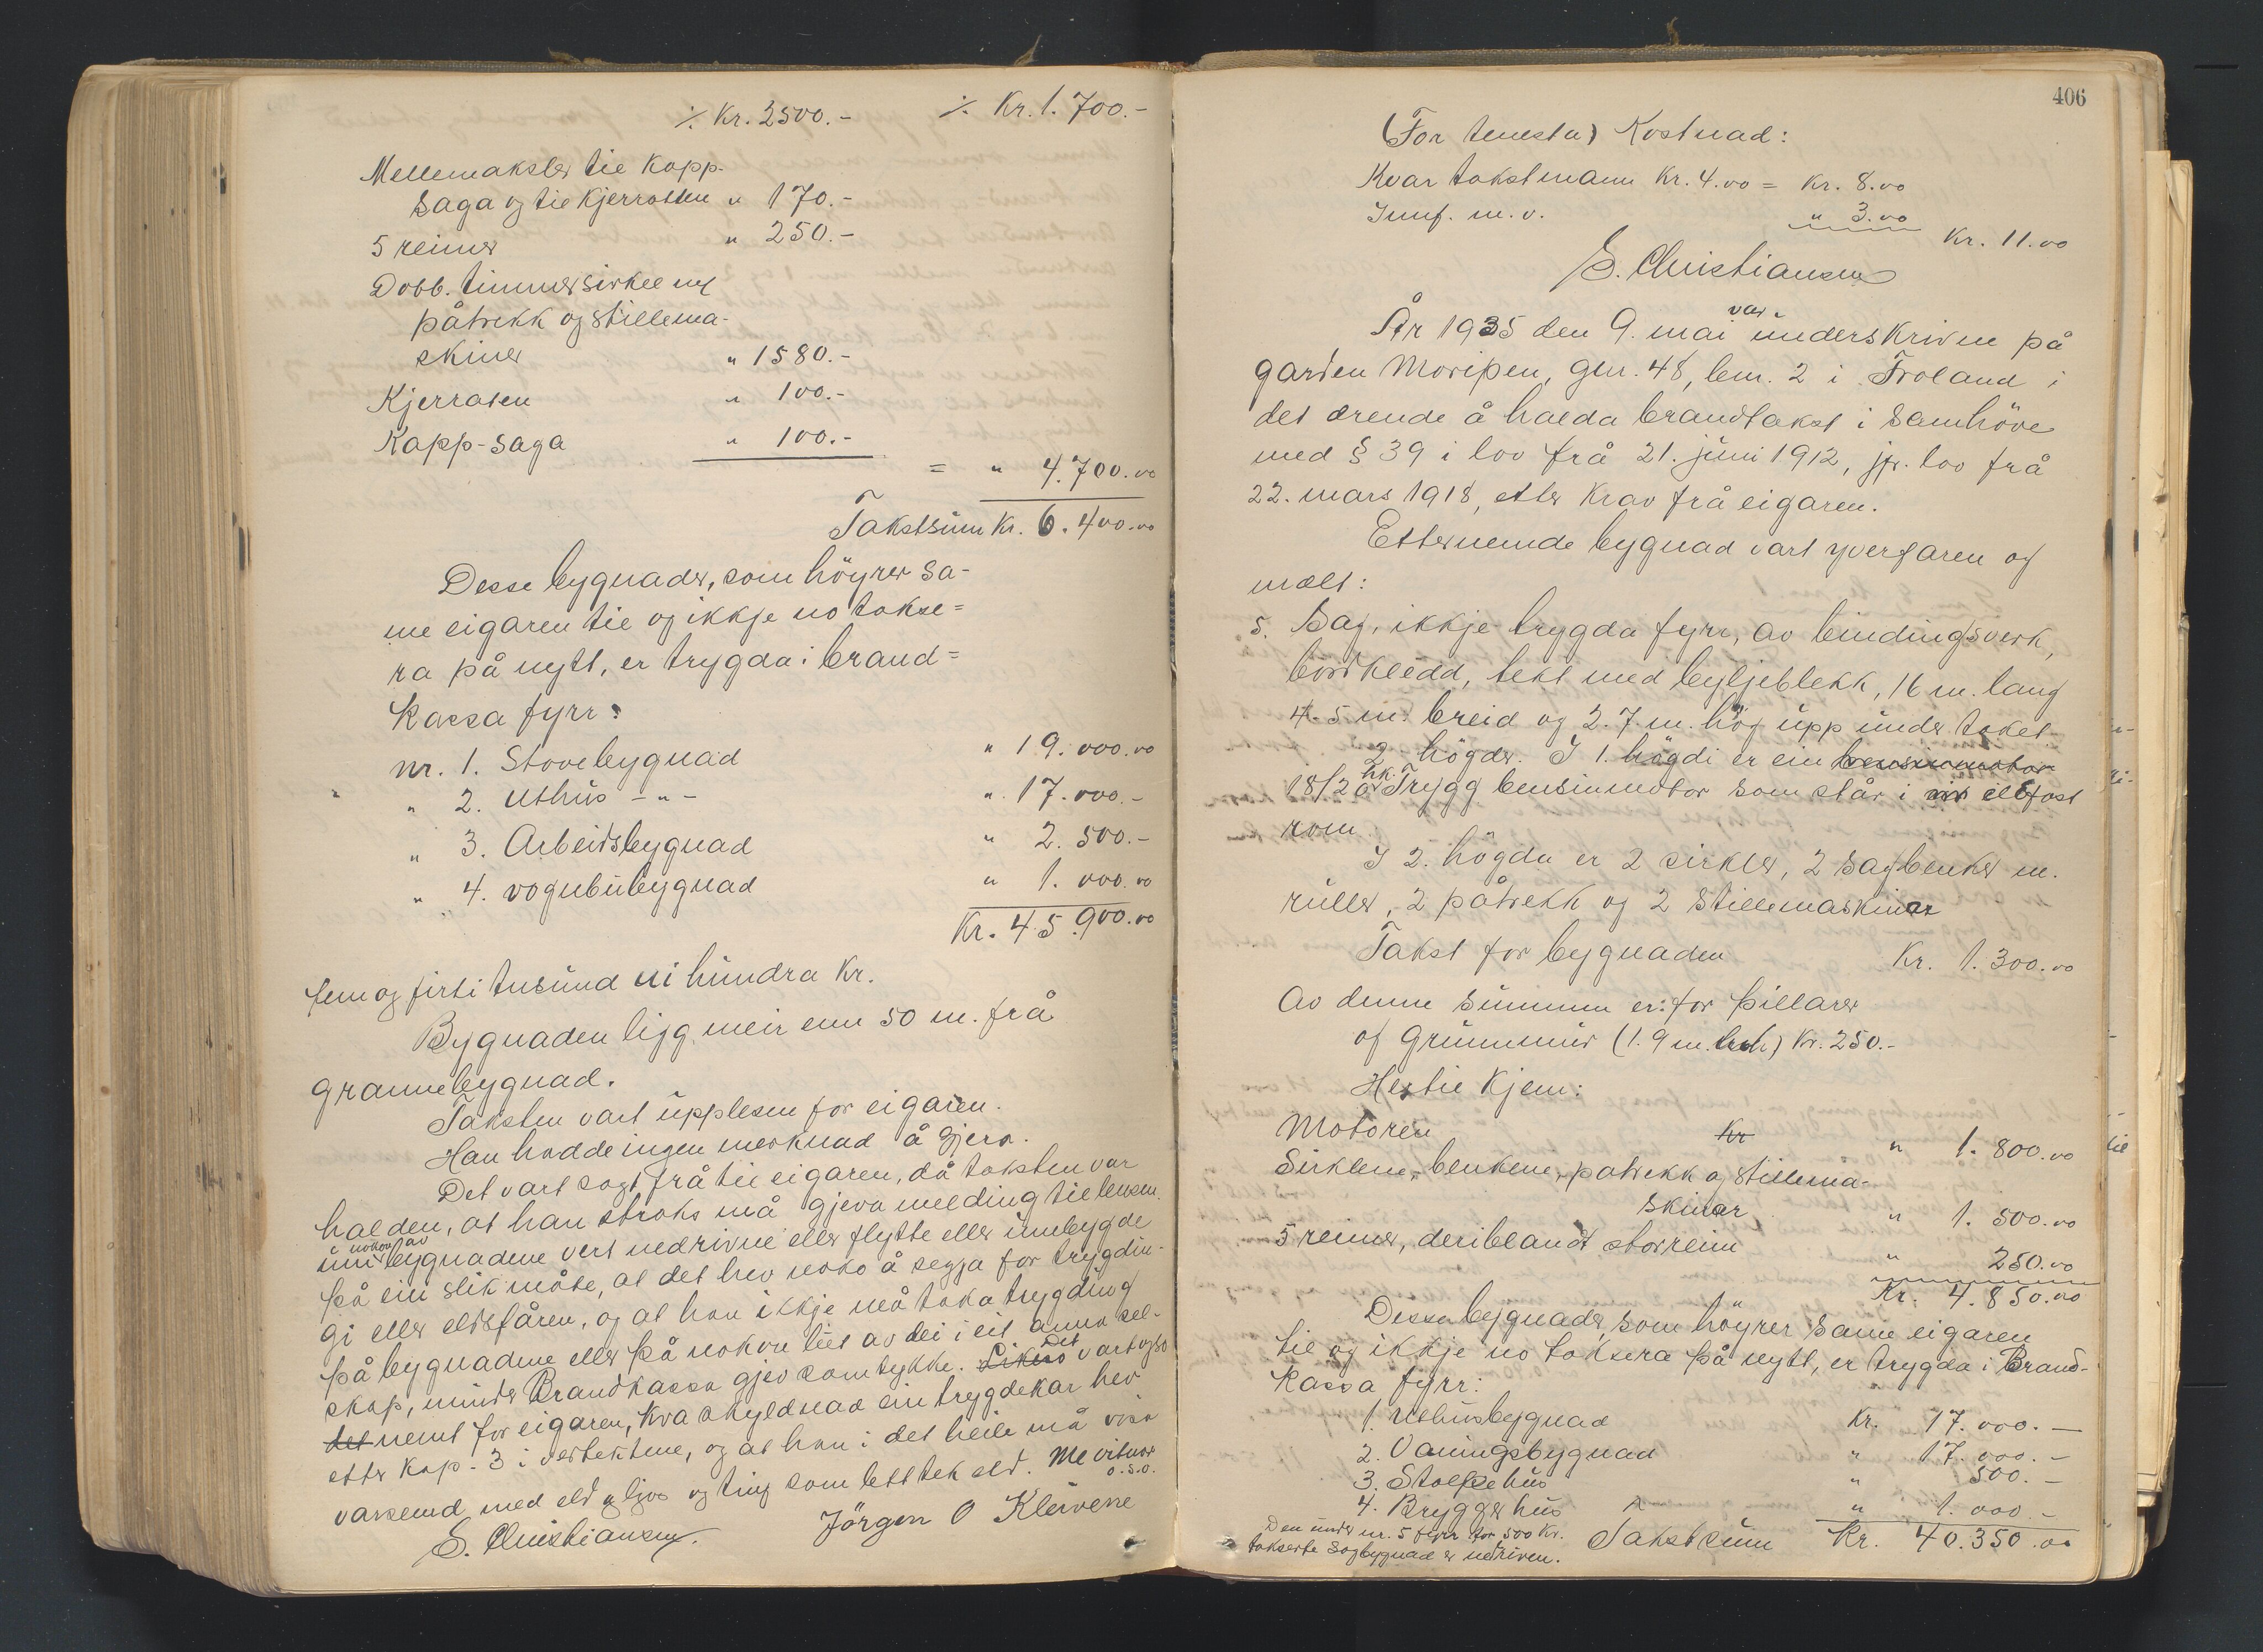 ./. Kr. 2500.- ./. Kr. 1.700.-
Mellemaksler til kapp-
saga og til kjerraten " 170.-
5 reimer " 250.-
Dobb. timmersirkel m/
påtrekk og stillema-
skiner " 1580.-
Kjerraten " 100.-
Kapp-saga " 100.-
= " 4.700.00
Takstsum Kr. 6.400.00
Desse bygnader, som höyrer sa-
me eigaren til og ikkje no takse=
ra på nytt, er trygda i brand=
kassa fyrr:
nr. 1. Stovebygnad " 19.000.00
" 2. Uthus -"- " 17.000.-
" 3. Arbeidsbygnad " 2.500.-
" 4. vognbubygnad " 1.000.00
Kr. 45.900.00
fem og firti tusund ni hundra kr.
Bygnaden ligg meir enn 50 m. frå
grannebygnad.
Taksten vart upplesen for eigaren.
Han hadde ingen merknad å gjera.
Det vart sagt frå til eigaren, då taksten var
halden, at han straks må gjeva melding til lensm.
um nokon av bygnadene vert nedrivne eller flytte eller umbygde
på ein slik måte, at det hev noko å segja for trygdin-
gi eller eldsfåren, og at han ikkje må taka trygding
på bygnadene eller på nokon lut av dei i eit anna sel-
skap, under Brandkassa gjev samtykke. Likeso Det vart og so
det nemt for eigaren, kva skyldnad ein trygdekar hev
etter kap. 3 i vedtektene, og at han i det heile må visa
varsemd med eld og ljos og ting som lett tek eld. Me vitnar
o.s.o.
S. Christiansen. Jörgen O Kleivene
406
(For tenesta) Kostnad:
Kvar takstmann kr. 4.00 = kr. 8.00
Innf. m.v. " 3.00
Kr. 11.00
S. Christiansen
År 1935 den 9. mai var underskrivne på
garden Moripen, gnr. 48, bnr. 2 i Froland i
det ærende å halda brandtakst i samhöve
med § 39 i lov frå 21. juni 1912, jfr. lov frå
22. mars 1918, etter krav frå eigaren.
Etternemde bygnad vart yverfaren og
mælt:
5. Sag, ikkje trygda fyrr, av bindingsverk,
bordkledd, tekt med byljeblekk, 16 m. lang
4.5 m. breid og 2.7 m. hög upp under taket.
2 högder. I 1. högdi er ein bensinmotor
18/20 hk. Trygg bensinmotor som står i eldfast
rom.
I 2. högda er 2 sirkler, 2 sagbenker m.
ruller, 2 påtrekk og 2 stillemaskiner
Takst for bygnaden Kr. 1.300.00
Av denne summen er: for pillarer
og grunnmur (1.9 m. ) kr. 250.-
Hertil kjem:
Motoren Kr " 1.800.00
Sirklene, benkene, påtrekk og stillema-
skiner " 1.500.00
5 reimer, deriblandt storreim " 250.00
Kr. 4.850.00
Desse bygnader, som höyrer same eigaren
til og ikkje no taksera på nytt, er trygda i Brand-
kassa fyrr:
1. Uthusbygnad Kr. 17.000.-
2. Vaningsbygnad " 17.000.-
3. Stolpehus " 500.-
4. Bryggerhus " 1.000.-
Den under nr. 5 fyrr for 500 kr.
takserte Sagbygnad er nedriven. Takstsum Kr. 40.350.00